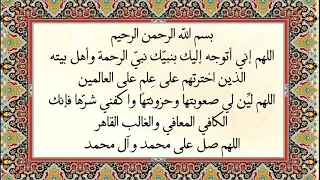 بسم الله الرحمن الرحيم
اللهم إني أتوجه إليك بنبيّك نبيّ الرحمة وأهل بيته
الذين اخترتهم على عِلم على العالمين
اللهم ليّن لي صعوبتها وحزونتها واكفني شرّها فإنك
الكافي المعافي والغالب القاهر
اللهم صل على محمد وآل محمد